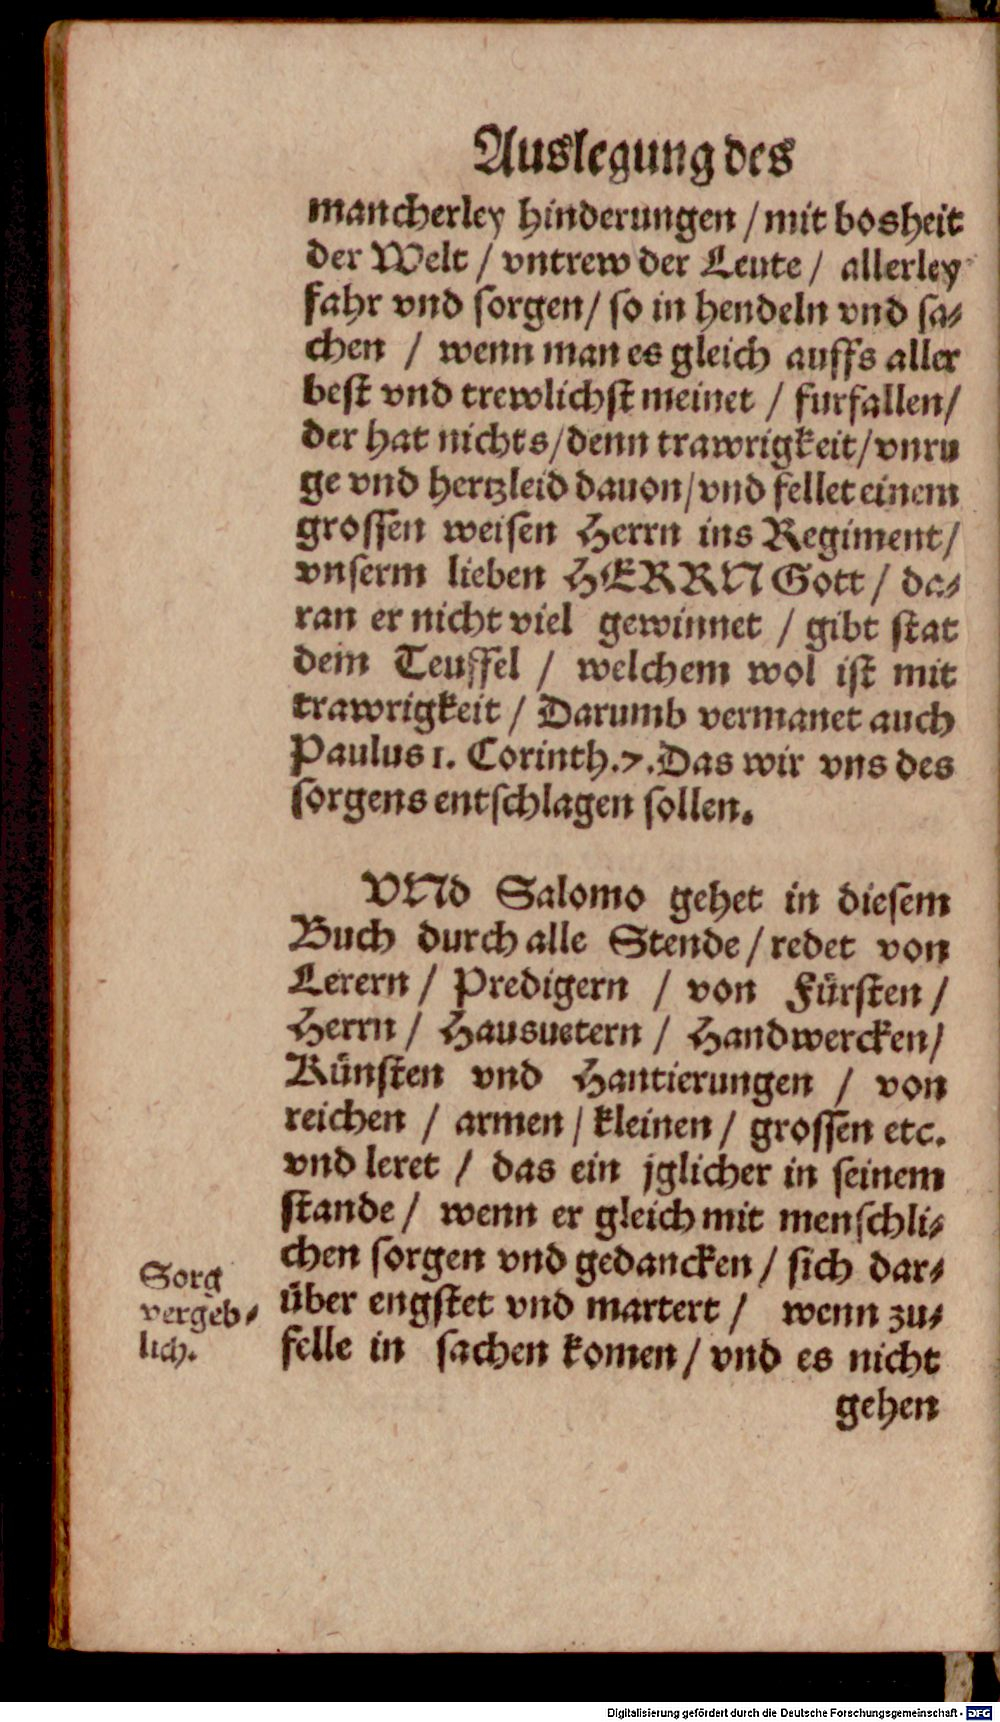 Auslegung des
mancherley hinderungen / mit bosheit
der Welt / vntrew der Leute / allerley
fahr vnd sorgen / so in hendeln vnd sa-
chen / wenn man es gleich auffs aller
best vnd trewlichst meinet / furfallen /
der hat nichts / denn trawrigkeit / vnru
ge vnd hertzleid dauon / vnd fellet einem
grossen weisen Herrn ins Regiment /
vnserm lieben HERRN Gott / da-
ran er nicht viel gewinnet / gibt stat
dem Teuffel / welchem wol ist mit
trawrigkeit / Darumb vermanet auch
Paulus 1. Corinth. 7. Das wir vns des
sorgens entschlagen sollen.
VNd Salomo gehet in diesem
Buch durch alle Stende / redet von
Lerern / Predigern / von Fürsten /
Herrn / Hausuetern / Handwercken /
Künsten vnd Hantierungen / von
reichen / armen / kleinen / grossen etc.
vnd leret / das ein jglicher in seinem
stande / wenn er gleich mit menschli-
chen sorgen vnd gedancken / sich dar-
über engstet vnd martert / wenn zu-
felle in sachen komen / vnd es nicht
gehen
Sorg
vergeb-
lich.
Digitalisierung gefördert durch die Deutsche Forschungsgemeinschaft - DFG